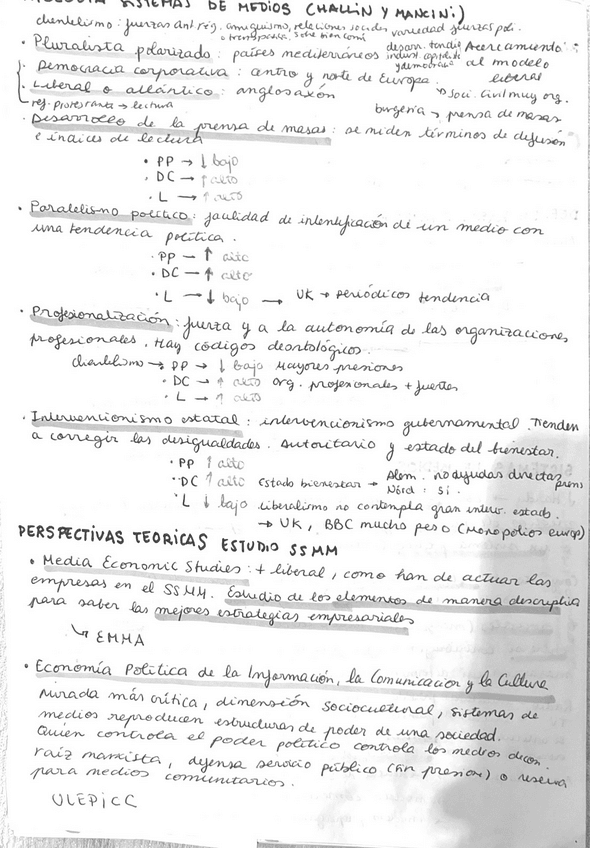 SISTEMAS DE MEDIOS (HALLIN Y MANCINI)
clientelismo: fuerzas ant rég. amiguismo, relaciones sociales variedad fuerzas polí.
· Pluralista polarizado: países mediterráneos
Acercamiento al modelo liberal
· Democracia corporativa: centro y norte de Europa.
· Liberal o atlántico: anglosaxón
→ soci. civil muy org.
ref. protestante → lectura
burgesía → prensa de masas
· Desarrollo de la prensa de masas: se miden términos de difusión
e índices de lectura
· PP → ↓ bajo
· DC → ↑ alto
· L → ↑ alto
· Paralelismo político: facilidad de intentificación de un medio con
una tendencia política.
· PP → ↑ alto
· DC → ↑ alto
· L → ↓ bajo → UK → periódicos tendencia
· Profesionalización: fuerza y a la autonomía de las organizaciones
profesionales. Hay códigos deontológicos.
clientelismo → PP → ↓ bajo Mayores presiones
· DC → ↑ alto org. profesionales + fuertes
· L → ↑ alto
· Intervencionismo estatal: intervencionismo gubernamental. Tienden
a corregir las desigualdades. Autoritario y estado del bienestar.
· PP ↑ alto
· DC ↑ alto Estado bienestar → Alem. no ayudas directas prens
Nórd: sí.
· L ↓ bajo liberalismo no contempla gran interv. estado.
→ UK, BBC mucho peso (monopolios europ)
PERSPECTIVAS TEORICAS ESTUDIO SSMM
· Media Economic Studies: + liberal, como han de actuar las
empresas en el SSMM. Estudio de los elementos de manera descriptiva
para saber las mejores estrategias empresariales
↳ EMMA
· Economía Política de la Información, la Comunicación y la Cultura
Mirada más crítica, dimensión sociocultural, sistemas de
medios reproducen estructuras de poder de una sociedad.
Quien controla el poder político controla los medios decon.
raíz marxista, defensa servicio público (sin presion) o reserva
para medios comunitarios.
ULEPICC